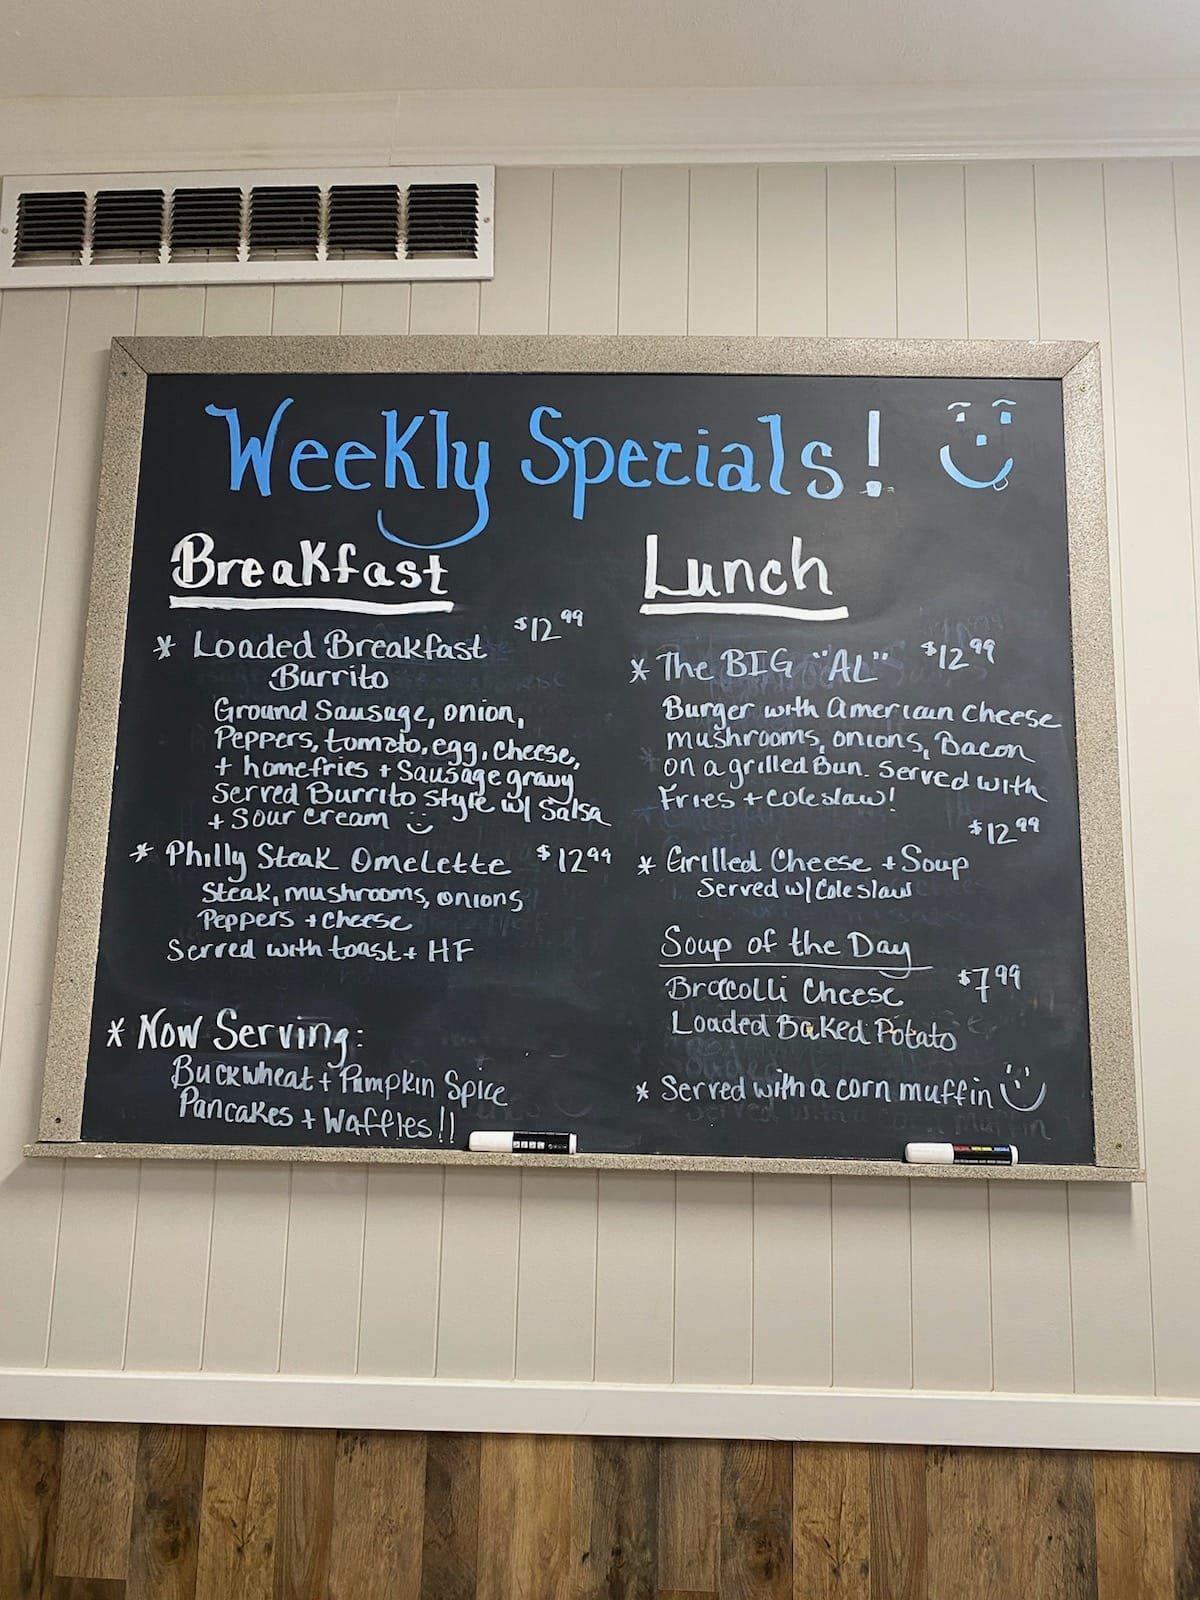 Weekly Specials!
Breakfast
* Loaded Breakfast $12.99
Burrito
Ground Sausage, onion,
Peppers, tomato, egg, cheese,
+ homefries + Sausage gravy
Served Burrito style w/ Salsa
+ Sour cream
* Philly Steak Omelette $12.99
Steak, mushrooms, onions
Peppers + cheese
Served with toast + HF
* Now Serving:
Buckwheat + Pumpkin Spice
Pancakes + Waffles!!
Lunch
* The BIG "AL" $12.99
Burger with American cheese
mushrooms, onions, Bacon
on a grilled Bun. Served with
Fries + coleslaw!
$12.99
* Grilled Cheese + Soup
Served w/ Coleslaw
Soup of the Day
Broccolli Cheese $7.99
Loaded Baked Potato
* Served with a corn muffin